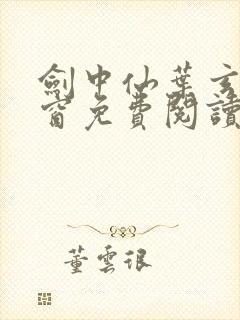 劍中仙葉玄
窗免費閱讀
董雲很